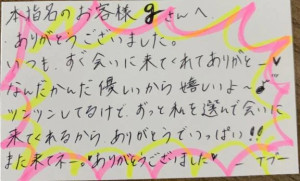 本指名のお客様 gさんへ
ありがとうございました。
いつも、すぐ会いに来てくれてありがと〜♥
なんだかんだ優しいから嬉しいよ〜
ツンツンしてるけど、ずっと私を選んで会いに
来てくれるから ありがとうでいっぱい!!
また来てネー。♥ありがとうございました♥